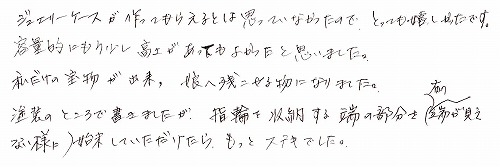 ジュエリーケースが作ってもらえるとは思っていなかったので、とっても嬉しかったです。
容量的にもう少し高さがあってもよかったと思いました。
私だけの宝物が出来、娘へ残こせる物になりました。
塗装のところで書きましたが、指輪を収納する端の部分を(布の端が見え
ない様に)始末していただけたら、もっとステキでした。